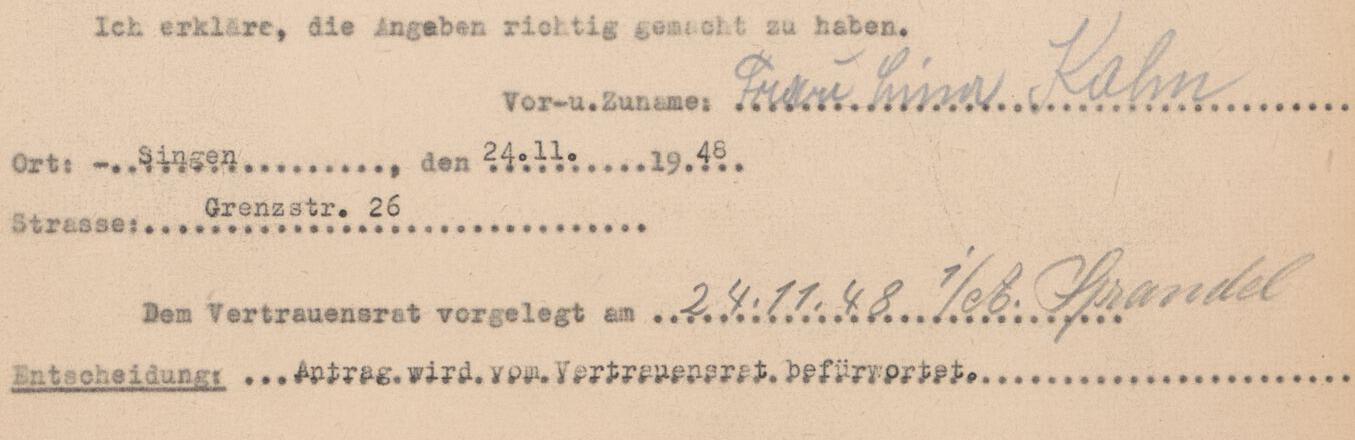 Ich erkläre, die Angaben richtig gemacht zu haben.
Vor-u.Zuname: Frau Lina Kahn
Ort: -..Singen.........., den 24.11. 19.48.
Strasse: Grenzstr. 26
Dem Vertrauensrat vorgelegt am 24.11.48 Sprandel
Entscheidung: ...Antrag.wird.vom.Vertrauensrat.befürwortet.